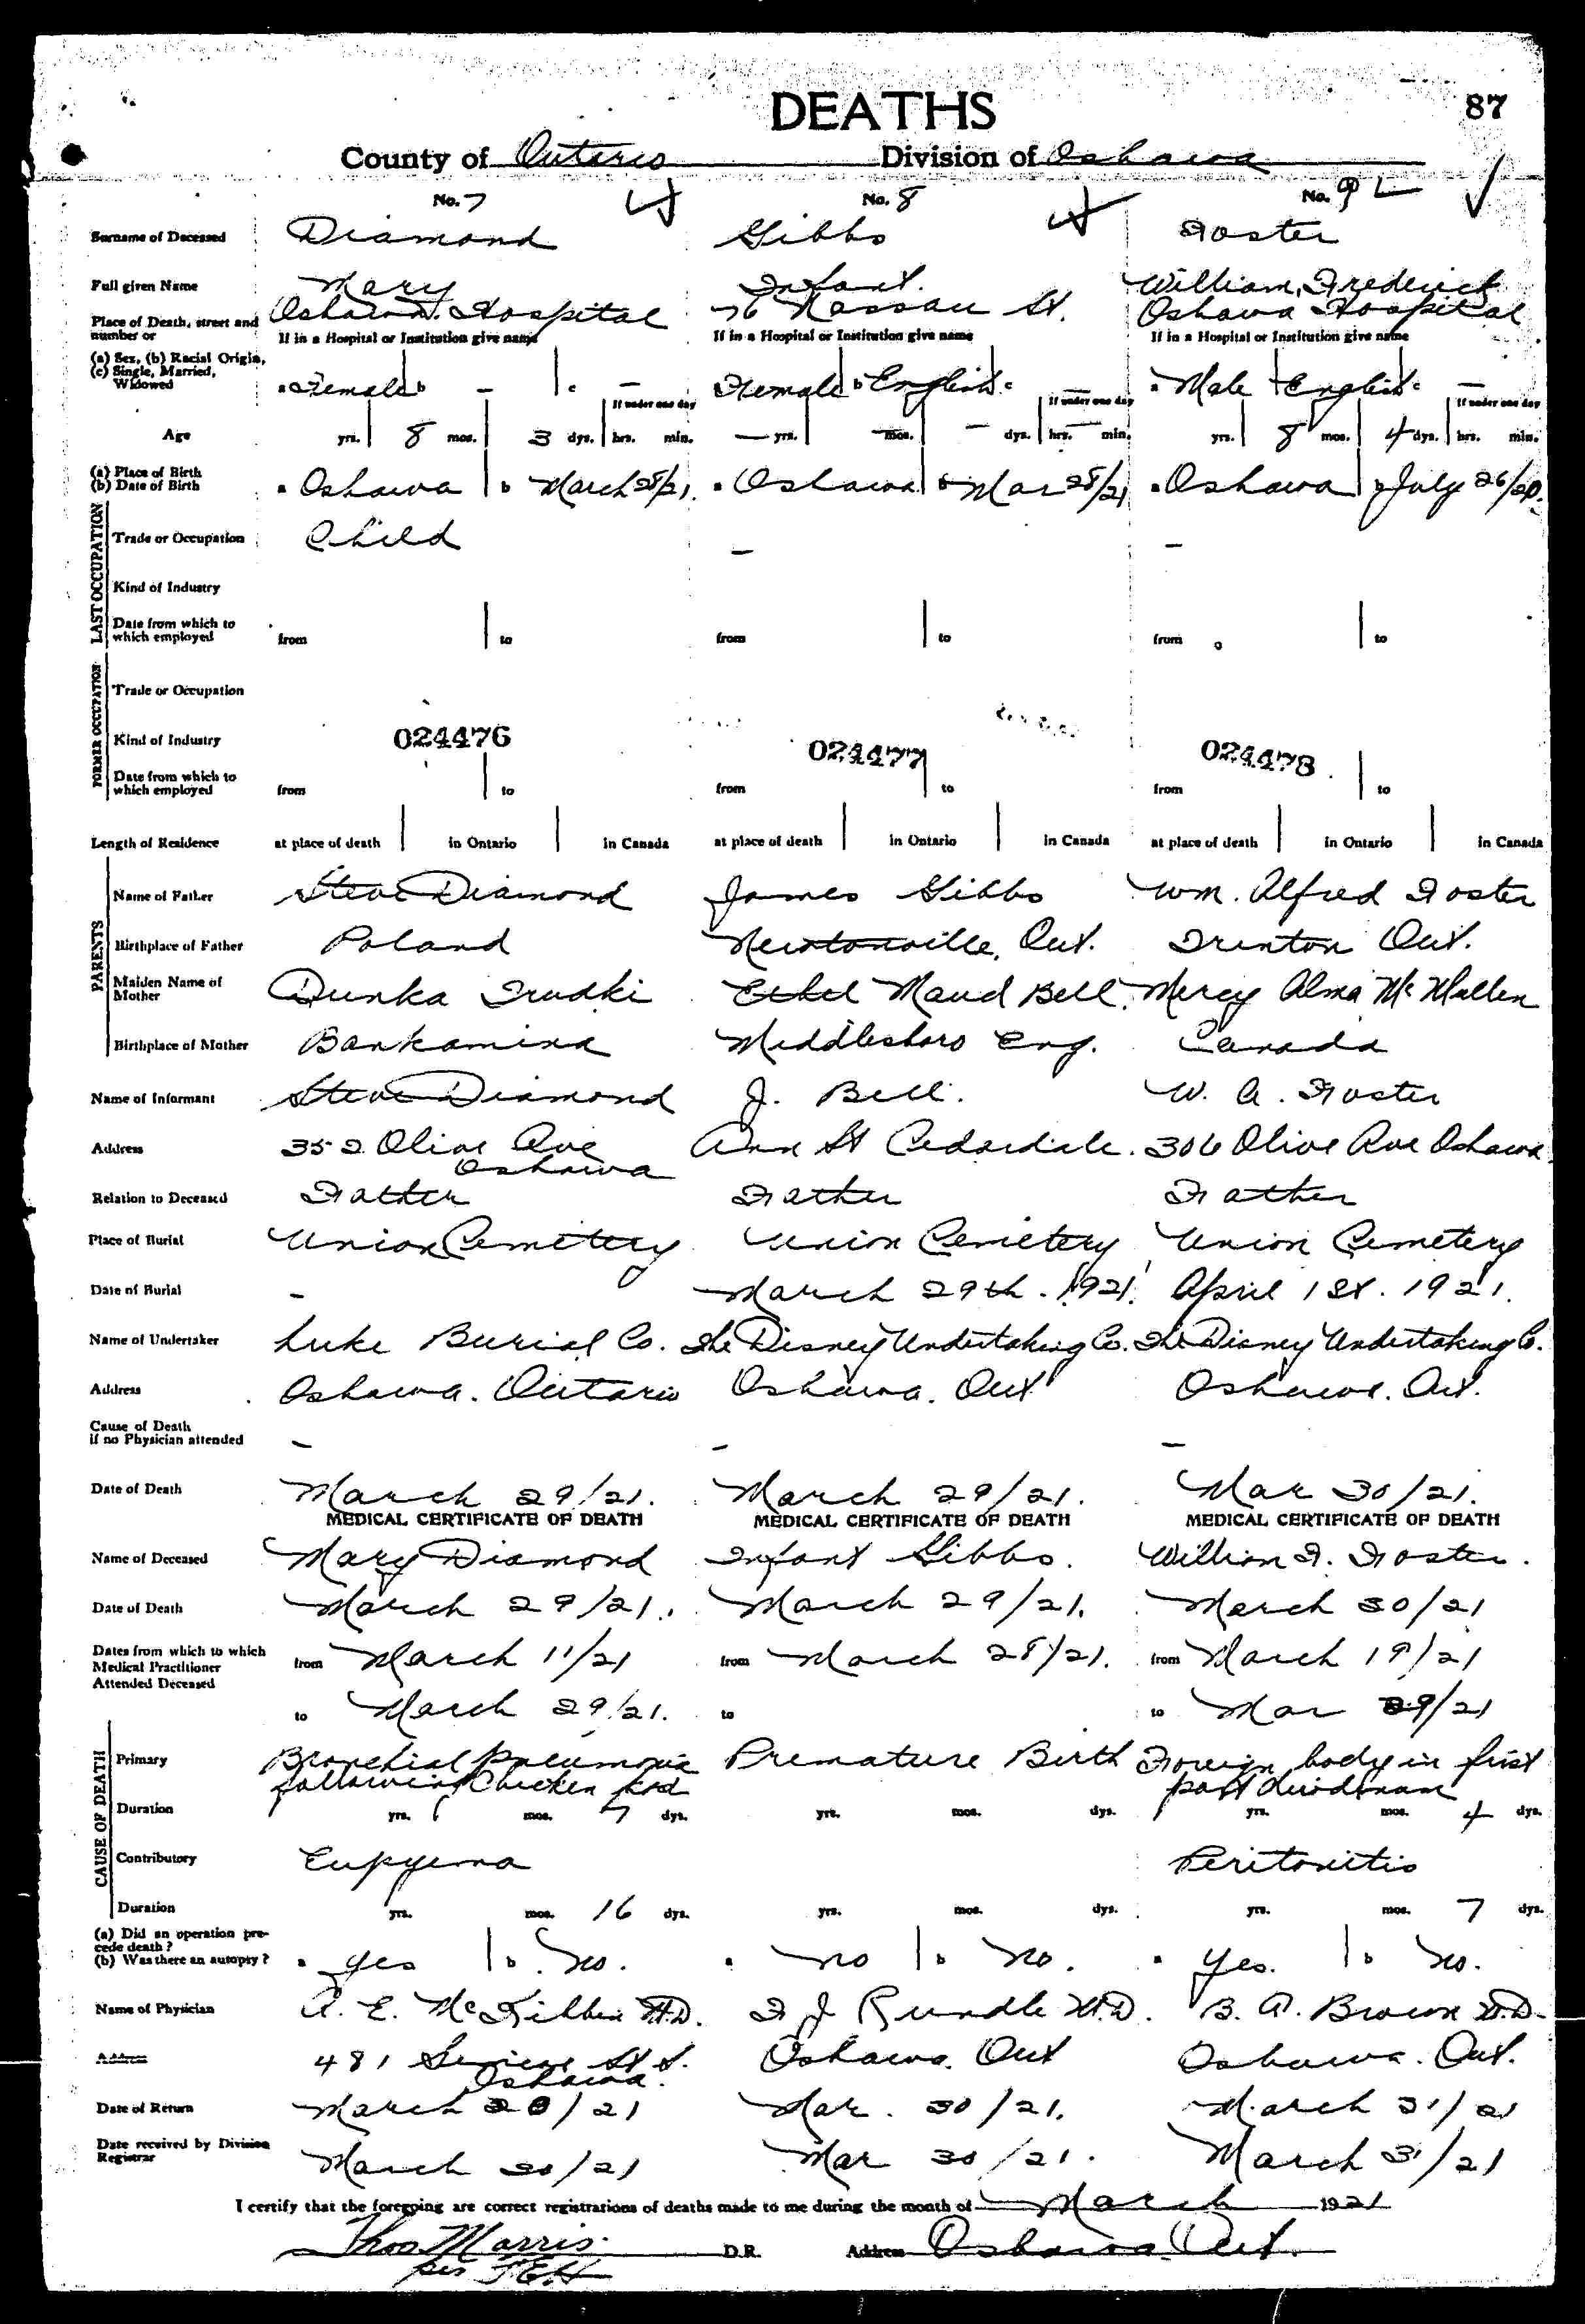 DEATHS
87
County of Ontario Division of Oshawa
No. 7 No. 8 No. 9
Surname of Deceased Diamond Gibbs Foster
Full given Name Mary Infant. William Frederick
Place of Death, street and number or Oshawa Hospital 76 Nassau St. Oshawa Hospital
If in a Hospital or Institution give name If in a Hospital or Institution give name If in a Hospital or Institution give name
(a) Sex, (b) Racial Origin,
(c) Single, Married,
Widowed
a Female b – c – Female b English c – a Male English c –
If under one day If under one day If under one day
Age yrs. 8 mos. 3 dys. hrs. min. – yrs. – mos. – dys. hrs. – min. yrs. 8 mos. 4 dys. hrs. min.
(a) Place of Birth
(b) Date of Birth
a Oshawa b March 28/21. a Oshawa b Mar 28/21 a Oshawa b July 26/20.
LAST OCCUPATION
Trade or Occupation Child – –
Kind of Industry
Date from which to
which employed from to from to from to
FORMER OCCUPATION
Trade or Occupation
Kind of Industry 024476 024477 024478
Date from which to
which employed from to from to from to
Length of Residence at place of death in Ontario in Canada at place of death in Ontario in Canada at place of death in Ontario in Canada
PARENTS
Name of Father Steve Diamond James Gibbs Wm. Alfred Foster
Birthplace of Father Poland Newtonville, Ont. Trenton Ont.
Maiden Name of
Mother Dunka Trudki Ethel Maud Bell. Mercy Alma McMullen
Birthplace of Mother Bankamina Middlesboro Eng. Canada
Name of Informant Steve Diamond J. Bell. W. A. Foster
Address 352 Olive Ave Ann St Cedardale. 306 Olive Ave Oshawa
Oshawa
Relation to Deceased Father Father Father
Place of Burial Union Cemetery Union Cemetery Union Cemetery
Date of Burial – March 29th. 1921. April 1st. 1921.
Name of Undertaker Luke Burial Co. The Disney Undertaking Co. The Disney Undertaking Co.
Address Oshawa. Ontario Oshawa. Ont Oshawa. Ont.
Cause of Death
if no Physician attended – – –
Date of Death March 29/21. March 29/21. Mar 30/21.
MEDICAL CERTIFICATE OF DEATH MEDICAL CERTIFICATE OF DEATH MEDICAL CERTIFICATE OF DEATH
Name of Deceased Mary Diamond Infant Gibbs. William F. Foster.
Date of Death March 29/21. March 29/21. March 30/21
Dates from which to which
Medical Practitioner
Attended Deceased
from March 11/21 from March 28/21. from March 19/21
to March 29/21. to to Mar 29/21
CAUSE OF DEATH
Primary Bronchial pneumonia Premature Birth Foreign body in first
following Chicken pox part duodenum
Duration yrs. mos. 7 dys. yrs. mos. dys. yrs. mos. 4 dys.
Contributory Empyema Peritonitis
Duration yrs. mos. 16 dys. yrs. mos. dys. yrs. mos. 7 dys.
(a) Did an operation pre-
cede death?
(b) Was there an autopsy?
a yes b no. a no b no. a yes. b no.
Name of Physician A. E. McKibbin M.D. F J Rundle M.D. B. A. Brown M.D.
Address 481 Simcoe St S. Oshawa. Ont Oshawa. Ont.
Oshawa.
Date of Return March 30/21 Mar. 30/21. March 31/21
Date received by Division
Registrar March 30/21 Mar 30/21. March 31/21
I certify that the foregoing are correct registrations of deaths made to me during the month of March 1921
Thos Morris. D.R. Address Oshawa. Ont.
per